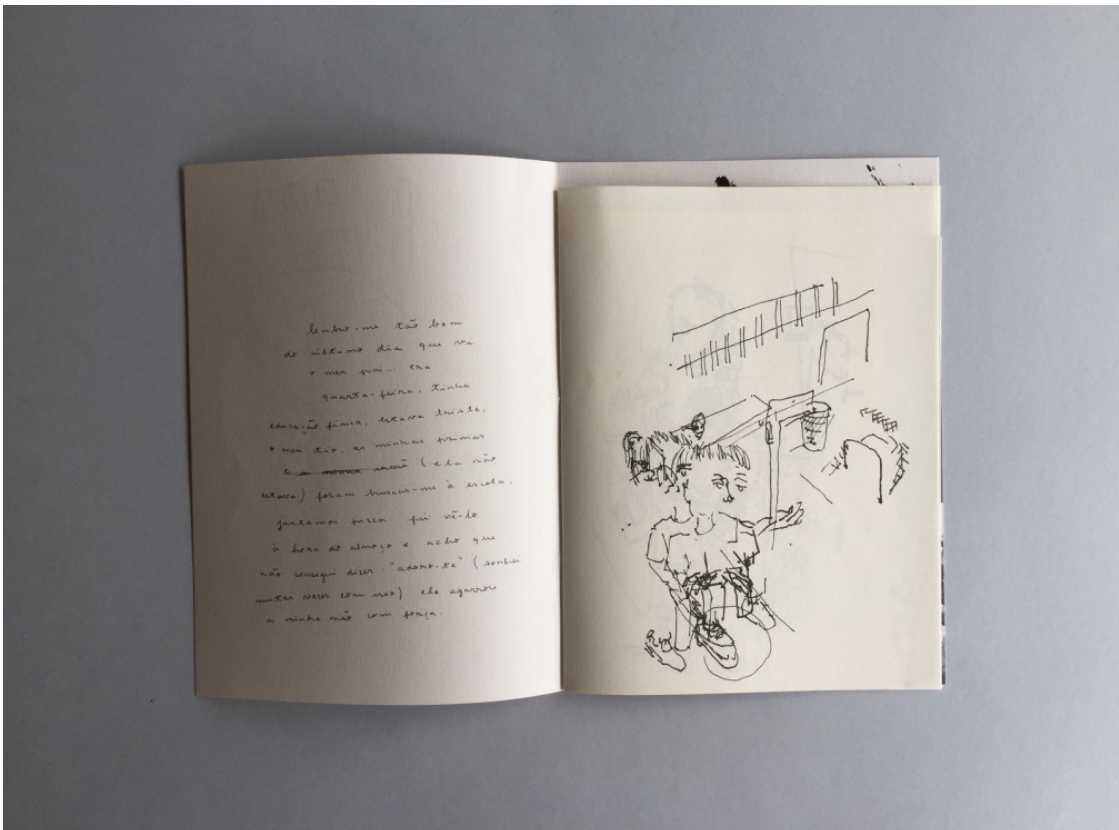 lembro-me tão bem
do último dia que vi
o meu pai... era
quarta-feira, tinha
educação física, estava triste,
o meu tio, as minhas primas
e a minha (ela não
estava) foram buscar-me à escola,
jantamos pizza. fui vê-lo
à hora do almoço e acho que
não consegui dizer: "adoro-te" (sonhei
muitas vezes com isso). ele agarrou
a minha mão com força.